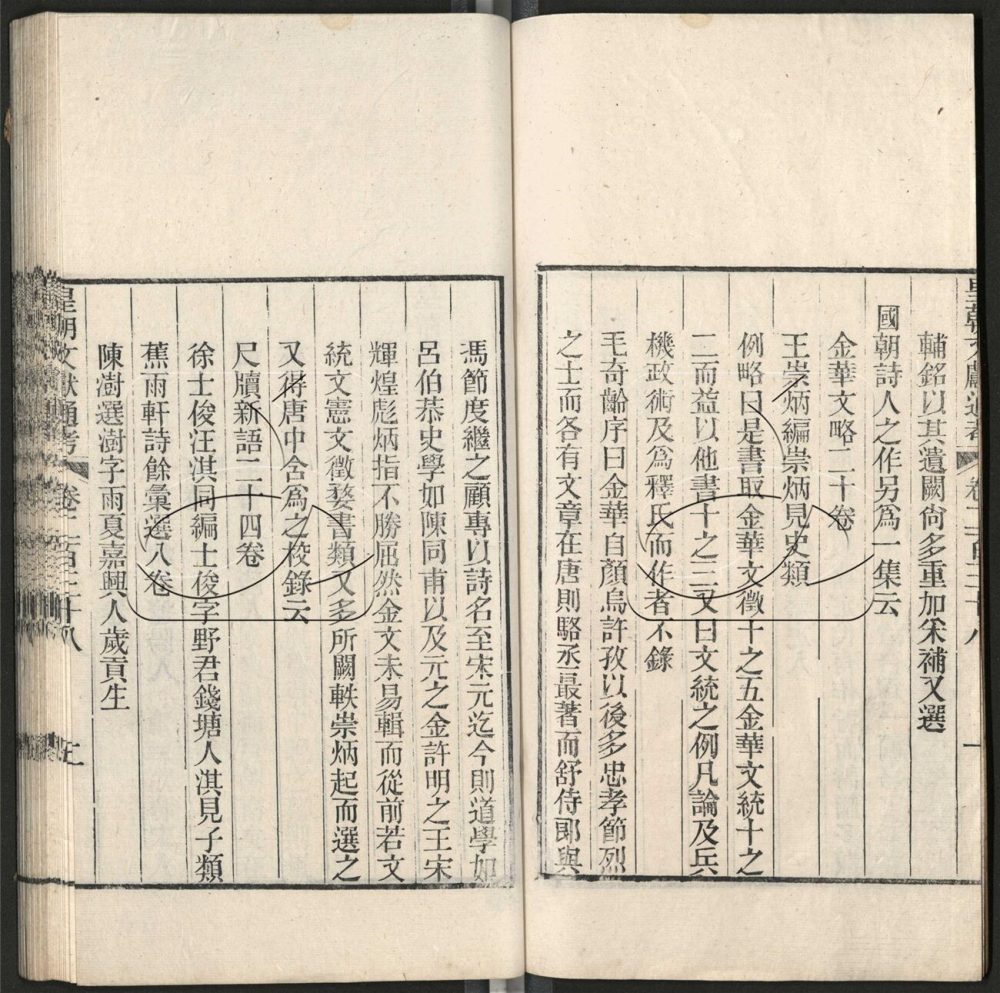 皇朝文獻通考 卷二百三十八
輔銘以其遺闕尙多重加采補又選
國朝詩人之作另爲一集云
金華文略二十卷
王崇炳編崇炳見史類
例略曰是書取金華文徵十之五金華文統十之
二而益以他書十之三又曰文統之例凡論及兵
機政術及爲釋氏而作者不錄
毛奇齡序曰金華自顏烏許孜以後多忠孝節烈
之士而各有文章在唐則駱丞最著而舒侍郎與
馮節度繼之顧專以詩名至宋元迄今則道學如
呂伯恭史學如陳同甫以及元之金許明之王宋
輝煌彪炳指不勝屈然金文未易輯而從前若文
統文憲文徵婺書類又多所闕軼崇炳起而選之
又得唐中舍爲之校錄云
尺牘新語二十四卷
徐士俊汪淇同編士俊字野君錢塘人淇見子類
蕉雨軒詩餘彙選八卷
陳澍選澍字雨夏嘉興人歲貢生
皇朝文獻通考 卷二百三十八